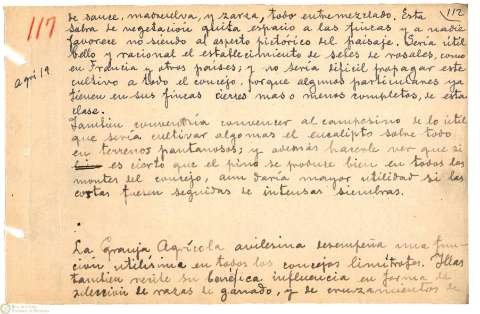 112
117
agri 19
de sauce, madreselva, y zarza, todo entremezclado. Esta
sobra de vegetacion quita espacio a las fincas y a nadie
favorece no siendo al aspecto pictórico del paisaje. Sería útil
bello y racional el establecimiento de setos de rosales, como
en Francia y otros paises; y no sería dificil propagar este
cultivo a todo el concejo, porque algunos particulares ya
tienen en sus fincas cierres mas o menos completos, de esta
clase.
Tambien convendria convencer al campesino de lo útil
que sería cultivar algo mas el eucalipto sobre todo
en terrenos pantanosos; y además hacerle ver que si
es cierto que el pino se produce bien en todos los
montes del concejo, aun daría mayor utilidad si las
cortas fuesen seguidas de intensas siembras.
La Granja Agrícola avilesina desempeña una fun-
ción utilísima en todos los concejos limítrofes. Illas
tambien recibe su benéfica influencia en forma de
selección de razas de ganado, y de cruzamientos de